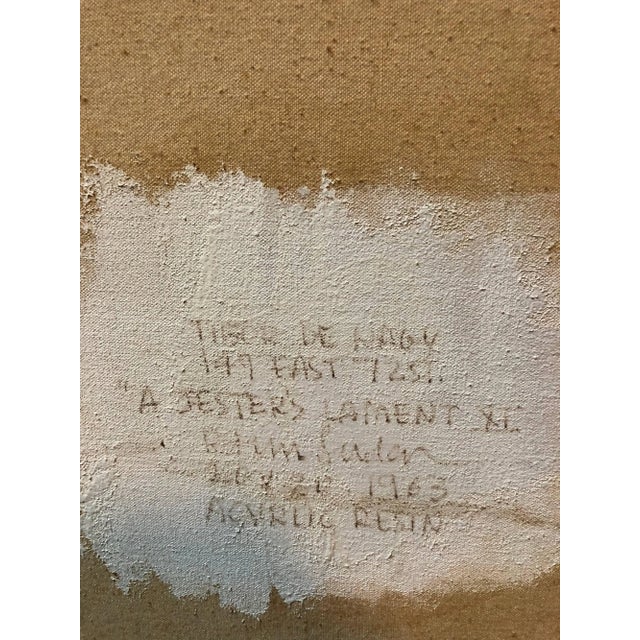 TIBER DE NAGY
149 EAST 72 ST.
"A JESTER'S LAMENT
20 1963
ACYRLIC RESIN